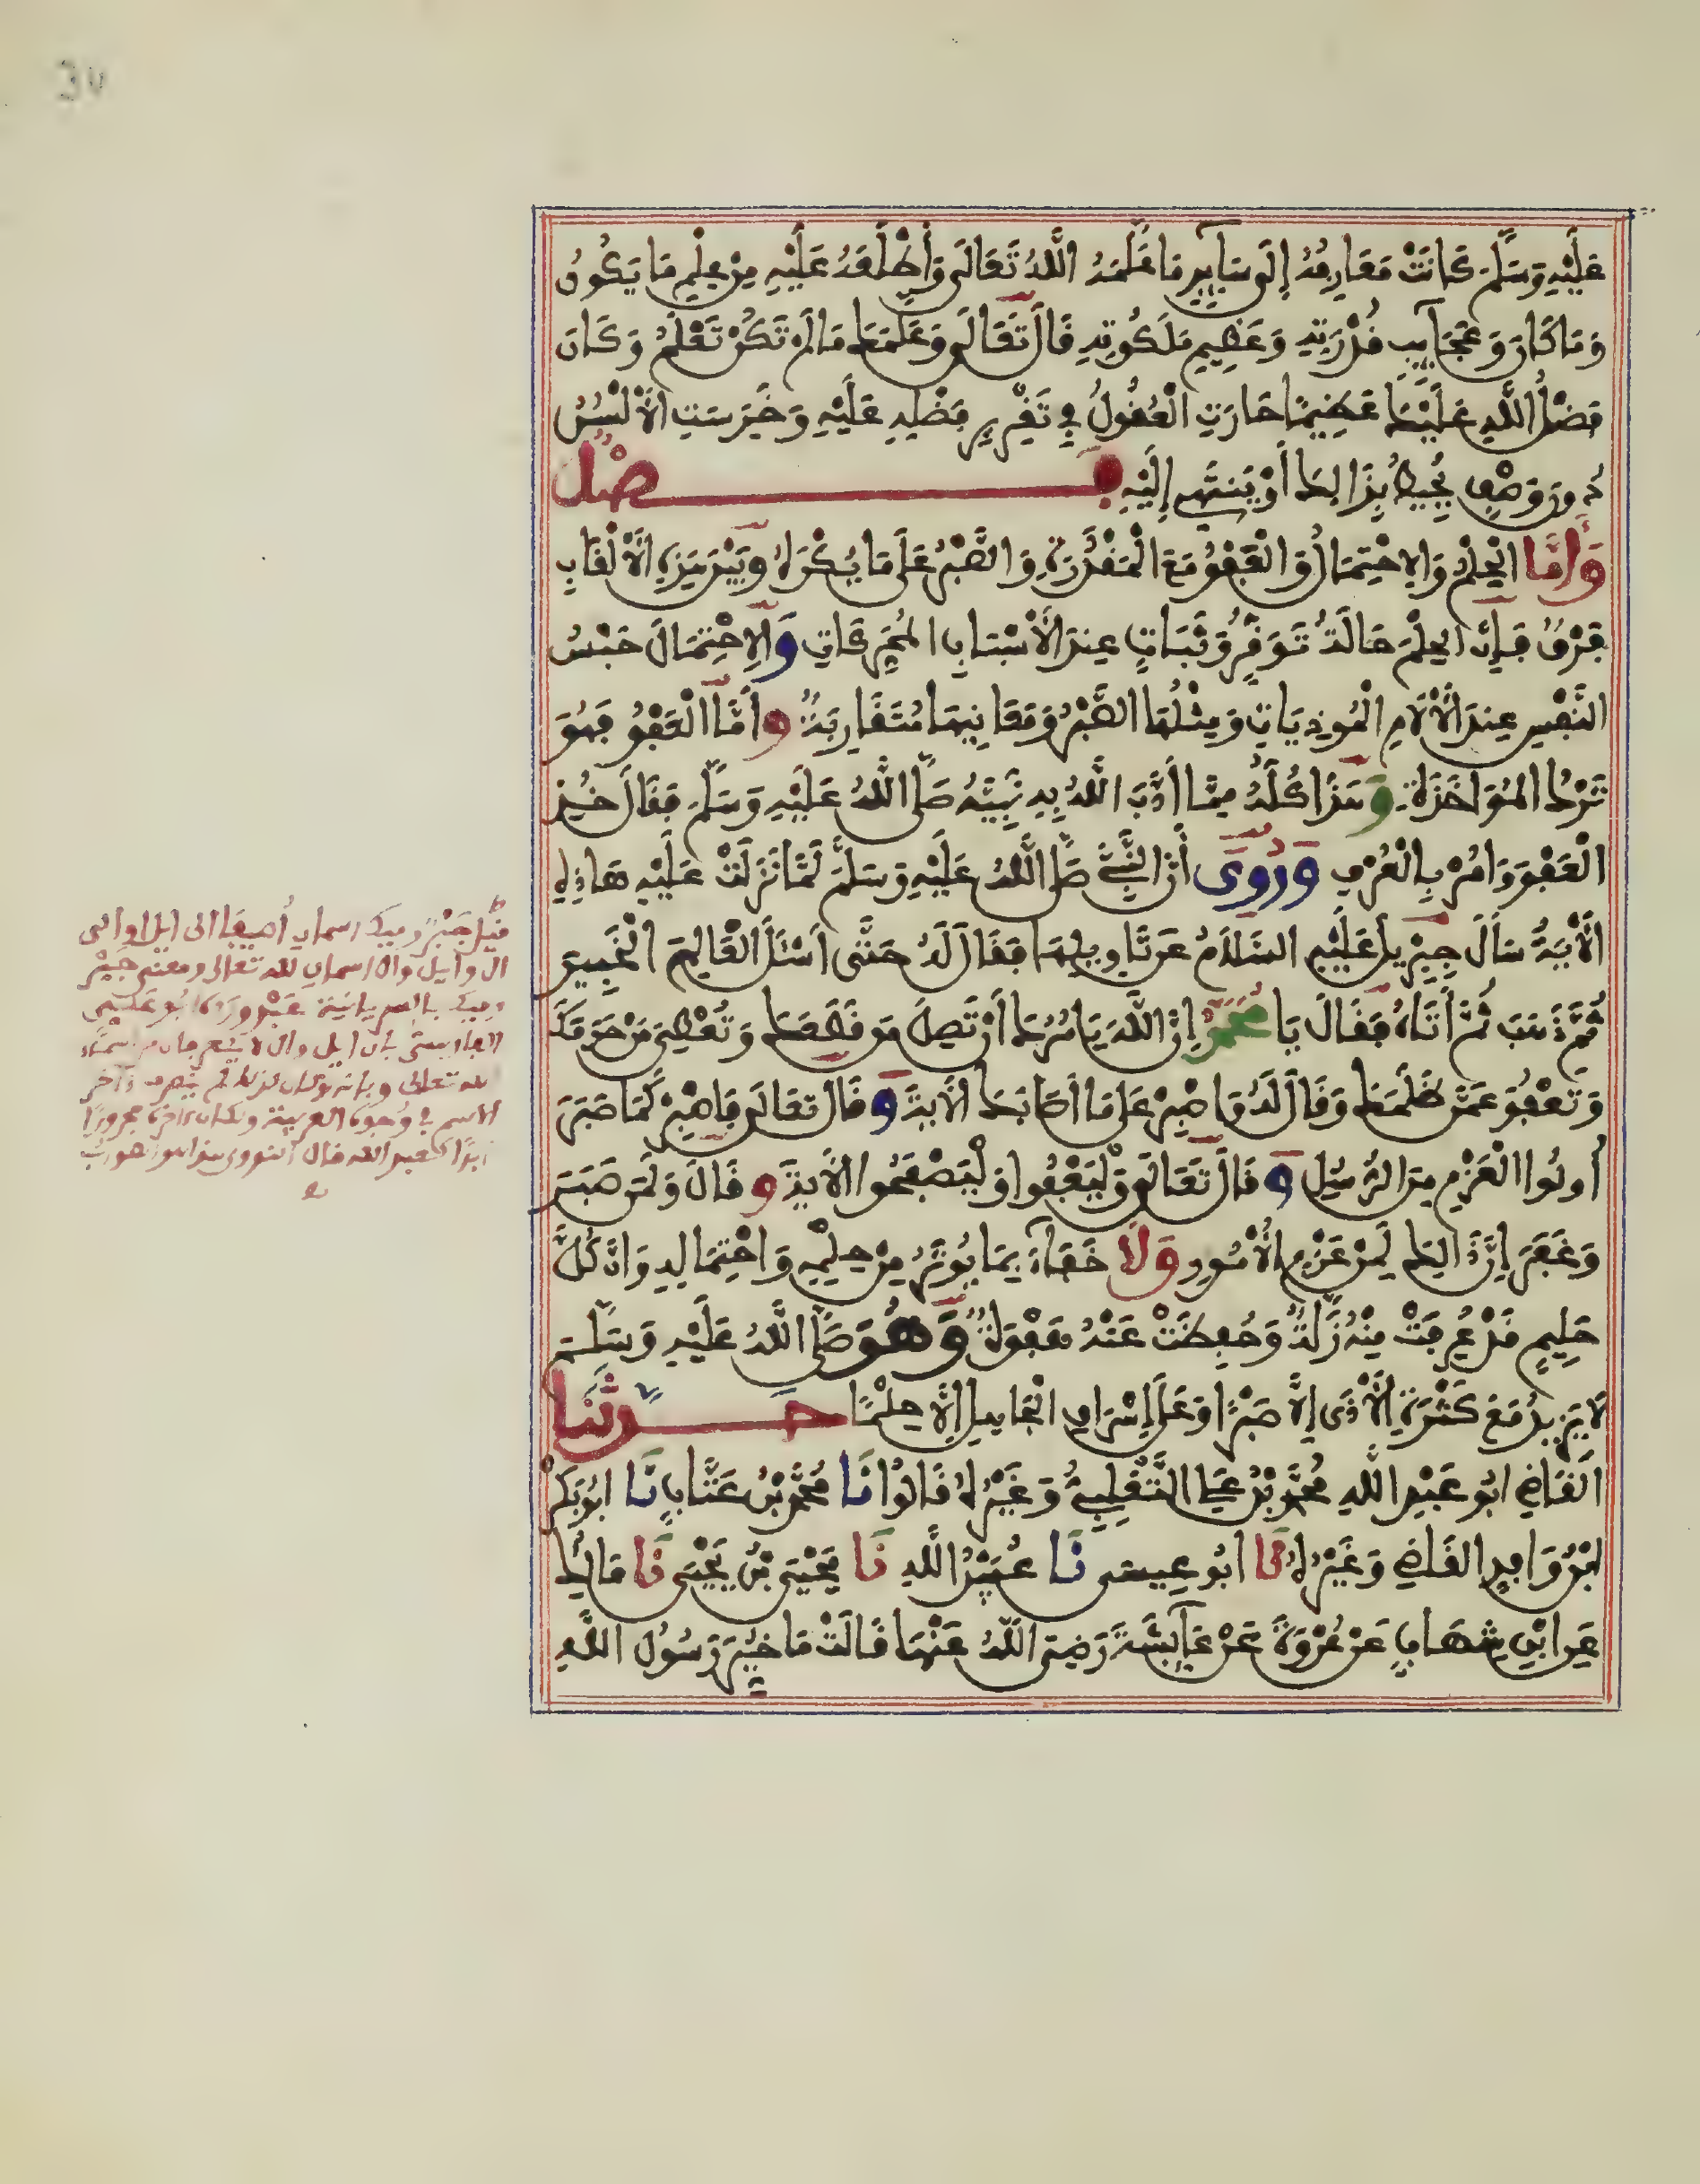 عَلَيْهِ وَسَلَّمَ كَانَتْ مَعَارِفُهُ إِلَى سَايِرِ مَا عَلَّمَهُ اللَّهُ تَعَالَى وَأَطْلَعَهُ عَلَيْهِ مِنْ عِلْمِ مَا يَكُونُ
وَمَا كَانَ وَعَجَايِبِ قُدْرَتِهِ وَعَظِيمِ مَلَكُوتِهِ قَالَ تَعَالَى وَعَلَّمَكَ مَا لَمْ تَكُنْ تَعْلَمُ وَكَانَ
فَضْلُ اللَّهِ عَلَيْكَ عَظِيمًا حَارَتِ الْعُقُولُ فِي تَقْدِيرِ فَضْلِهِ عَلَيْهِ وَخَرِسَتِ الْأَلْسُنُ
دُونَ وَصْفٍ يُحِيطُ بِذَالِكَ أَوْ يَنْتَهِي إِلَيْهِ فَصْلٌ
وَأَمَّا الْحِلْمُ وَالِاحْتِمَالُ وَالْعَفْوُ مَعَ الْمَقْدُرَةِ وَالصَّبْرُ عَلَى مَا يُكْرَهُ وَبَيْنَ هَذِهِ الْأَلْقَابِ
فَرْقٌ فَإِنَّ الْحِلْمَ حَالَةُ تَوَقُّرٍ وَثَبَاتٍ عِنْدَ الْأَسْبَابِ الْمُحَرِّكَاتِ وَالِاحْتِمَالَ حَبْسُ
النَّفْسِ عِنْدَ الْآلَامِ الْمُوذِيَاتِ وَمِثْلُهَا الصَّبْرُ وَمَعَانِيهَا مُتَقَارِبَةٌ وَأَمَّا الْعَفْوُ فَهُوَ
تَرْكُ الْمُوَاخَذَةِ وَهَذَا كُلُّهُ مِمَّا أَدَّبَ اللَّهُ بِهِ نَبِيَّهُ صَلَّى اللَّهُ عَلَيْهِ وَسَلَّمَ فَقَالَ خُذِ
الْعَفْوَ وَامُرْ بِالْعُرْفِ وَرُوِيَ أَنَّ النَّبِيَّ صَلَّى اللَّهُ عَلَيْهِ وَسَلَّمَ لَمَّا نَزَلَتْ عَلَيْهِ هَاذِهِ
الْآيَةُ سَأَلَ جِبْرِيلَ عَلَيْهِ السَّلَامُ عَنْ تَاوِيلِهَا فَقَالَ لَهُ حَتَّى أَسْئَلَ الْعَالِمَ الْخَبِيرَ
ثُمَّ ذَهَبَ ثُمَّ أَتَاهُ فَقَالَ يَا مُحَمَّدُ إِنَّ اللَّهَ يَامُرُكَ أَنْ تَصِلَ مَن قَطَعَكَ وَتُعْطِيَ مَنْ حَرَمَكَ
وَتَعْفُوَ عَمَّنْ ظَلَمَكَ وَقَالَ لَهُ وَاصْبِرْ عَلَى مَا أَصَابَكَ الْآيَةَ وَقَالَ تَعَالَى فَاصْبِرْ كَمَا صَبَرَ
أُولُوا الْعَزْمِ مِنَ الرُّسُلِ وَقَالَ تَعَالَى وَلْيَعْفُوا وَلْيَصْفَحُوا الْآيَةَ وَقَالَ وَلَمَن صَبَرَ
وَغَفَرَ إِنَّ ذَالِكَ لَمِنْ عَزْمِ الْأُمُورِ وَلَا خَفَاءَ بِمَا يُوثَرُ مِنْ حِلْمِهِ وَاحْتِمَالِهِ وَأَنَّ كُلَّ
حَلِيمٍ قَدْ عُرِفَتْ مِنْهُ زَلَّةٌ وَحُفِظَتْ عَنْهُ هَفْوَةٌ وَهُوَ صَلَّى اللَّهُ عَلَيْهِ وَسَلَّمَ
لَا يَزِيدُ مَعَ كَثْرَةِ الْأَذَى إِلَّا صَبْرًا وَعَلَى إِسْرَافِ الْجَاهِلِ إِلَّا حِلْمًا حَدَّثَنَا
الْقَاضِي أَبُو عَبْدِ اللَّهِ مُحَمَّدُ بْنُ عَلِيٍّ التَّغْلِبِيُّ وَغَيْرُهُ قَالُوا نَا مُحَمَّدُ بْنُ عَتَّابٍ نَا أَبُو بَكْرِ
ابْنُ وَافِدٍ الْقَاضِي وَغَيْرُهُ نَا أَبُو عِيسَى نَا عُبَيْدُ اللَّهِ نَا يَحْيَى بْنُ يَحْيَى نَا مَالِكٌ
عَنِ ابْنِ شِهَابٍ عَنْ عُرْوَةَ عَنْ عَايِشَةَ رَضِيَ اللَّهُ عَنْهَا قَالَتْ مَا خُيِّرَ رَسُولُ اللَّهِ
قيل جَبْر وميك اسمان أضيفا الى ايل او الى
ال وايل وال اسمان لله تعالى ومعنى جبر
وميك بالسريانية عبد ورده ابو علي
الفارسي بان ايل وال لا يعرفان من اسماء
الله تعالى وبانه لو كان كذلك لم ينصرف آخر
الاسم في وجوه العربية ولكان آخره مجرورا
ابدا كعبد الله قال النووي هذا هو الصواب